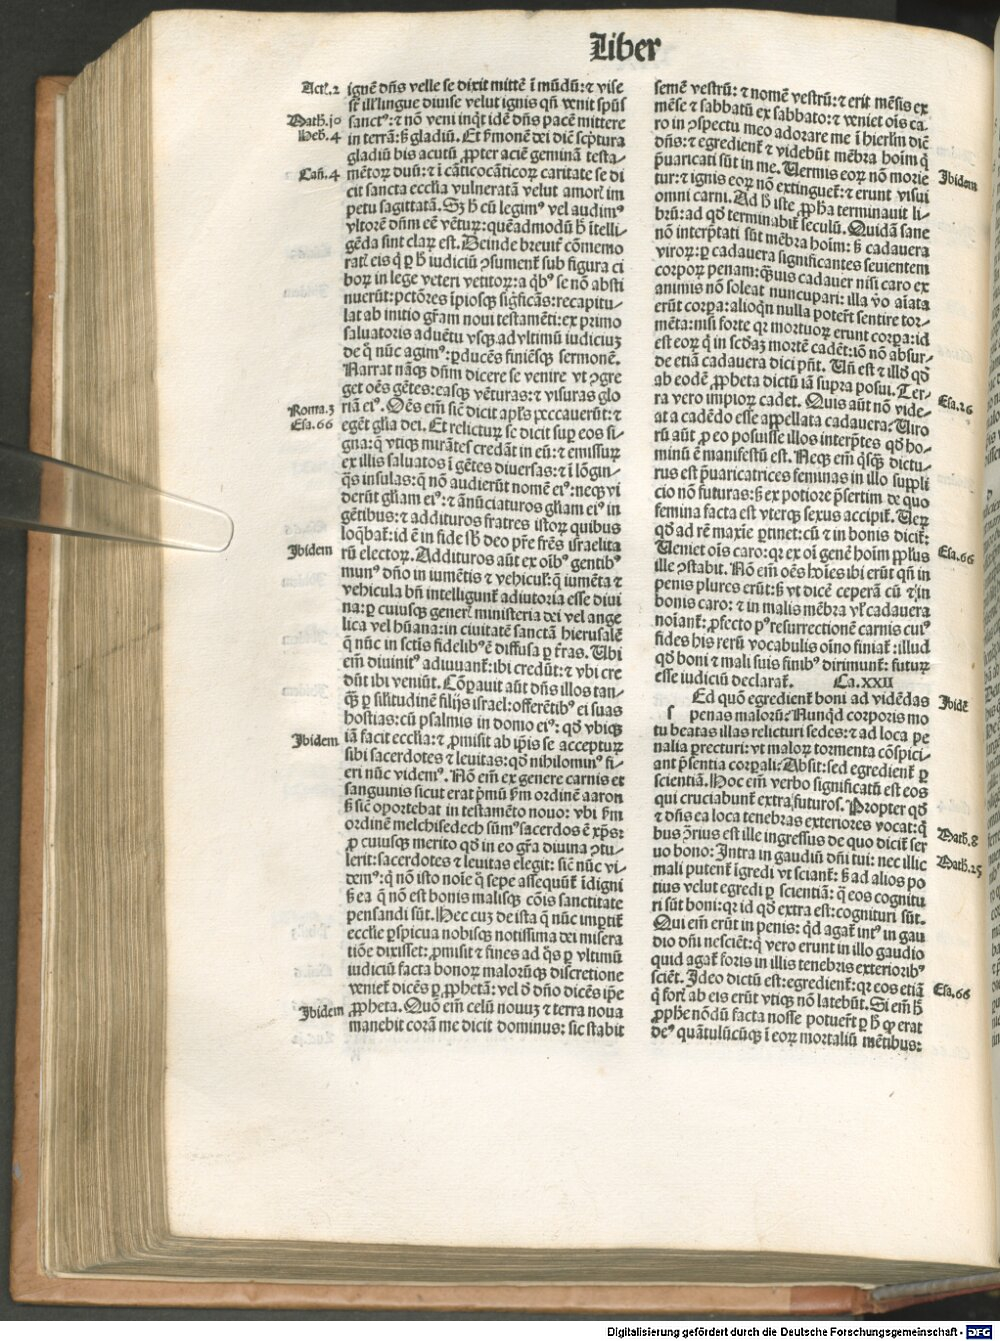 Liber
Act͛.2
Math.10
Heb.4
Cāt.4
Roma.3
Esa.66
Ibidem
Ibidem
Ibidem
ignē dn̄s velle se dixit mittē ī mūdū: ⁊ vise
sanctꝰ: ⁊ nō veni inq̄t idē dn̄s pacē mittere
in terrā: ꝫ gladiū. Et ẜmonē dei diē scp̄tura
gladiū bis acutū ꝓpter aciē geminā testa-
mētoꝝ duū: ⁊ ī cāticocāticoꝝ caritate se di
cit sancta ecclīa vulneratā velut amor͛ im
petu sagittatā. Sꝫ h̄ cū legimꝰ vel audimꝰ
vltorē dn̄m eē vētuꝝ: quēadmodū h̄ ītelli-
gēda sint claꝝ est. Deinde breuit͛ cōmemo
rat͛ eis q̄ ꝑ h̄ iudiciū ɔsument͛ sub figura ci
boꝝ in lege veteri vetitoꝝ: a q̄bꝰ se nō absti
nuerūt: pctōres īpiosqꝫ sigficās: recapitu-
lat ab initio gr̄am noui testamēti: ex primo
saluatoris aduētu vsqꝫ ad vltimū iudiciuꝫ
de q̄ nūc agimꝰ: ꝑducēs finiēsqꝫ sermonē.
Narrat nāqꝫ dn̄m dicere se venire vt ɔgre
get oēs gētes: easqꝫ vēturas: ⁊ visuras glo
riā eiꝰ. Oēs em̄ sic̄ dicit apl̄s peccauerūt: ⁊
egēt gl̄ia dei. Et relictuꝝ se dicit suꝑ eos si-
gna: q̄ vtiqꝫ mirātes credāt in eū: ⁊ emissuꝝ
ex illis saluatos ī gētes diuersas: ⁊ ī lōgin-
q̄s insulas: q̄ nō audierūt nomē eiꝰ: neqꝫ vi
derūt gl̄iam eiꝰ: ⁊ ānūciaturos gl̄iam eiꝰ in
gētibus: ⁊ addituros fratres istoꝝ quibus
loq̄bat͛: id ē in fide sb̄ deo pr̄e fr̄es israelita
rū electoꝝ. Addituros aūt ex oīb̄ꝰ gentibꝰ
munꝰ dn̄o in iumētis ⁊ vehicul͛: q̄ iumēta ⁊
vehicula bn̄ intelligunt͛ adiutoria esse diui
na: ꝑ cuiusqꝫ gener͛ ministeria dei vel ange
lica vel hūana: in ciuitatē sanctā hierusalē
q̄ nūc in sctīs fidelibꝰ ē diffusa ꝑ t͛ras. Ubi
em̄ diuinitꝰ adiuuant͛: ibi credūt: ⁊ vbi cre
dūt ibi veniūt. Cōꝑauit aūt dn̄s illos tan-
q̄ꝫ ꝑ sil̄itudinē filijs israel: offerētibꝰ ei suas
hostias: cū psalmis in domo eiꝰ: qd̄ vbiqꝫ
iā facit ecclīa: ⁊ ꝓmisit ab ip̄is se acceptuꝝ
sibi sacerdotes ⁊ leuitas: qd̄ nihilominꝰ fi-
eri nūc videmꝰ. Nō em̄ ex genere carnis et
sanguinis sicut erat p̄mū ẜm ordinē aaron
ꝫ sic̄ oportebat in testamēto nouo: vbi ẜm
ordinē melchisedech sūmꝰ sacerdos ē xp̄s:
ꝓ cuiusqꝫ merito qd̄ in eo gr̄a diuina ɔtu-
lerit: sacerdotes ⁊ leuitas elegit: sic̄ nūc vi-
demꝰ: q̄ nō isto noīe q̄ sepe assequūt͛ īdigni
ꝫ ea q̄ nō est bonis malisqꝫ cōis sanctitate
pensandi sūt. Hec cuꝫ de ista q̄ nūc imꝑtit͛
ecclīe ꝑspicua nobisqꝫ notissima dei misera
tiōe dixisset: ꝓmisit ⁊ fines ad q̄s ꝑ vltimū
iudiciū facta bonoꝝ maloꝝūqꝫ discretione
veniet͛ dicēs ꝑ ꝓphetā: vel d̄ dn̄o dicēs ip̄e
ꝓpheta. Quō em̄ celū nouuꝫ ⁊ terra noua
manebit corā me dicit dominus: sic stabit
semē vestrū: ⁊ nomē vestrū: ⁊ erit mēsis ex
mēse ⁊ sabbatū ex sabbato: ⁊ veniet oīs ca-
ro in ɔspectu meo adorare me ī hierlm̄ dic̄
dn̄s: ⁊ egredient͛ ⁊ videbūt mēbra hoīm q̄
p̄uaricati sūt in me. Uermis eoꝝ nō morie
tur: ⁊ ignis eoꝝ nō extinguet͛: ⁊ erunt visui
omni carni. Ad h̄ iste ꝓph̄a terminauit li-
brū: ad qd̄ terminabit͛ seculū. Quidā sane
nō interp̄tati sūt mēbra hoīm: ꝫ cadauera
viroꝝ: ꝑ cadauera significantes seuientem
corpoꝝ penam: q̄uis cadauer nisi caro ex
animis nō soleat nuncupari: illa v̄o aīata
erūt corꝑa: alioq̄n nulla potert̄ sentire tor-
mēta: nisi forte qr mortuoꝝ erunt corꝑa: id
est eoꝝ q̄ in scd̄aꝫ mortē cadēt: iō nō absur-
de etiā cadauera dici pn̄t. Un̄ est ⁊ illd̄ qd̄
ab eodē ꝓpheta dictū iā supra posui. Ter-
ra vero impioꝝ cadet. Quis aūt nō vide-
at a cadēdo esse appellata cadauera: Uiro
rū aūt ꝓ eo posuisse illos interp̄tes qd̄ ho-
minū ē manifestū est. Neqꝫ em̄ q̄sqꝫ dictu-
rus est p̄uaricatrices feminas in illo suppli
cio nō futuras: ꝫ ex potiore p̄sertim de quo
femina facta est vterqꝫ sexus accipit͛. Ueꝝ
qd̄ ad rē maxīe ꝑtinet: cū ⁊ in bonis dicit͛:
Ueniet oīs caro: qr ex oī genē hoīm ppl̄us
ille ɔstabit. Nō em̄ oēs hoīes ibi erūt qn̄ in
penis plures erūt: ꝫ vt dicē ceperā cū ⁊ in
bonis caro: ⁊ in malis mēbra vl̄ cadauera
noīant͛: ꝓfecto pꝰ resurrectionē carnis cuiꝰ
fides his rerū vocabulis oīno finiat͛: illud
qd̄ boni ⁊ mali suis finibꝰ dirimunt͛: futuꝝ
esse iudiciū declarat͛. Ca.XXII
Ed quō egredient͛ boni ad vidēdas
s penas maloꝝ: Nunq̄d corporis mo
tu beatas illas relicturi sedes: ⁊ ad loca pe
nalia ꝑrecturi: vt maloꝝ tormenta cōspici-
ant p̄sentia corꝑali: Absit: sed egredient͛ ꝑ
scientiā. Hoc em̄ verbo significatū est eos
qui cruciabunt͛ extra futuros. Propter qd̄
⁊ dn̄s ea loca tenebras exteriores vocat: q̄
bus ɔ̄rius est ille ingressus de quo dicit͛ ser
uo bono: Intra in gaudiū dn̄i tui: nec illic
mali putent͛ īgredi vt sciant͛: ꝫ ad alios po
tius velut egredi ꝑ scientiā: q̄ eos cognitu
ri sūt boni: qr id qd̄ extra est: cognituri sūt.
Qui em̄ erūt in penis: qd̄ agat͛ intꝰ in gau
dio dn̄i nesciēt: q̄ vero erunt in illo gaudio
quid agat͛ foris in illis tenebris exterioribꝰ
sciēt. Ideo dictū est: egredient͛: qr eos etiā
q̄ for͛ ab eis erūt vtiqꝫ nō latebūt. Si em̄ h̄
ꝓph̄e nōdū facta nosse potuer̄t ꝑ h̄ qꝫ erat
deꝰ quātulūcūqꝫ ī eoꝝ mortaliū mētibus:
Ibidem
Esa.26
Esa.66
Ibidē
Math.8
Math.25
Esa.66